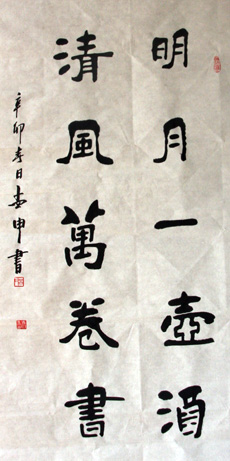 明月一壺酒
清風萬卷書
辛卯春日壺申書